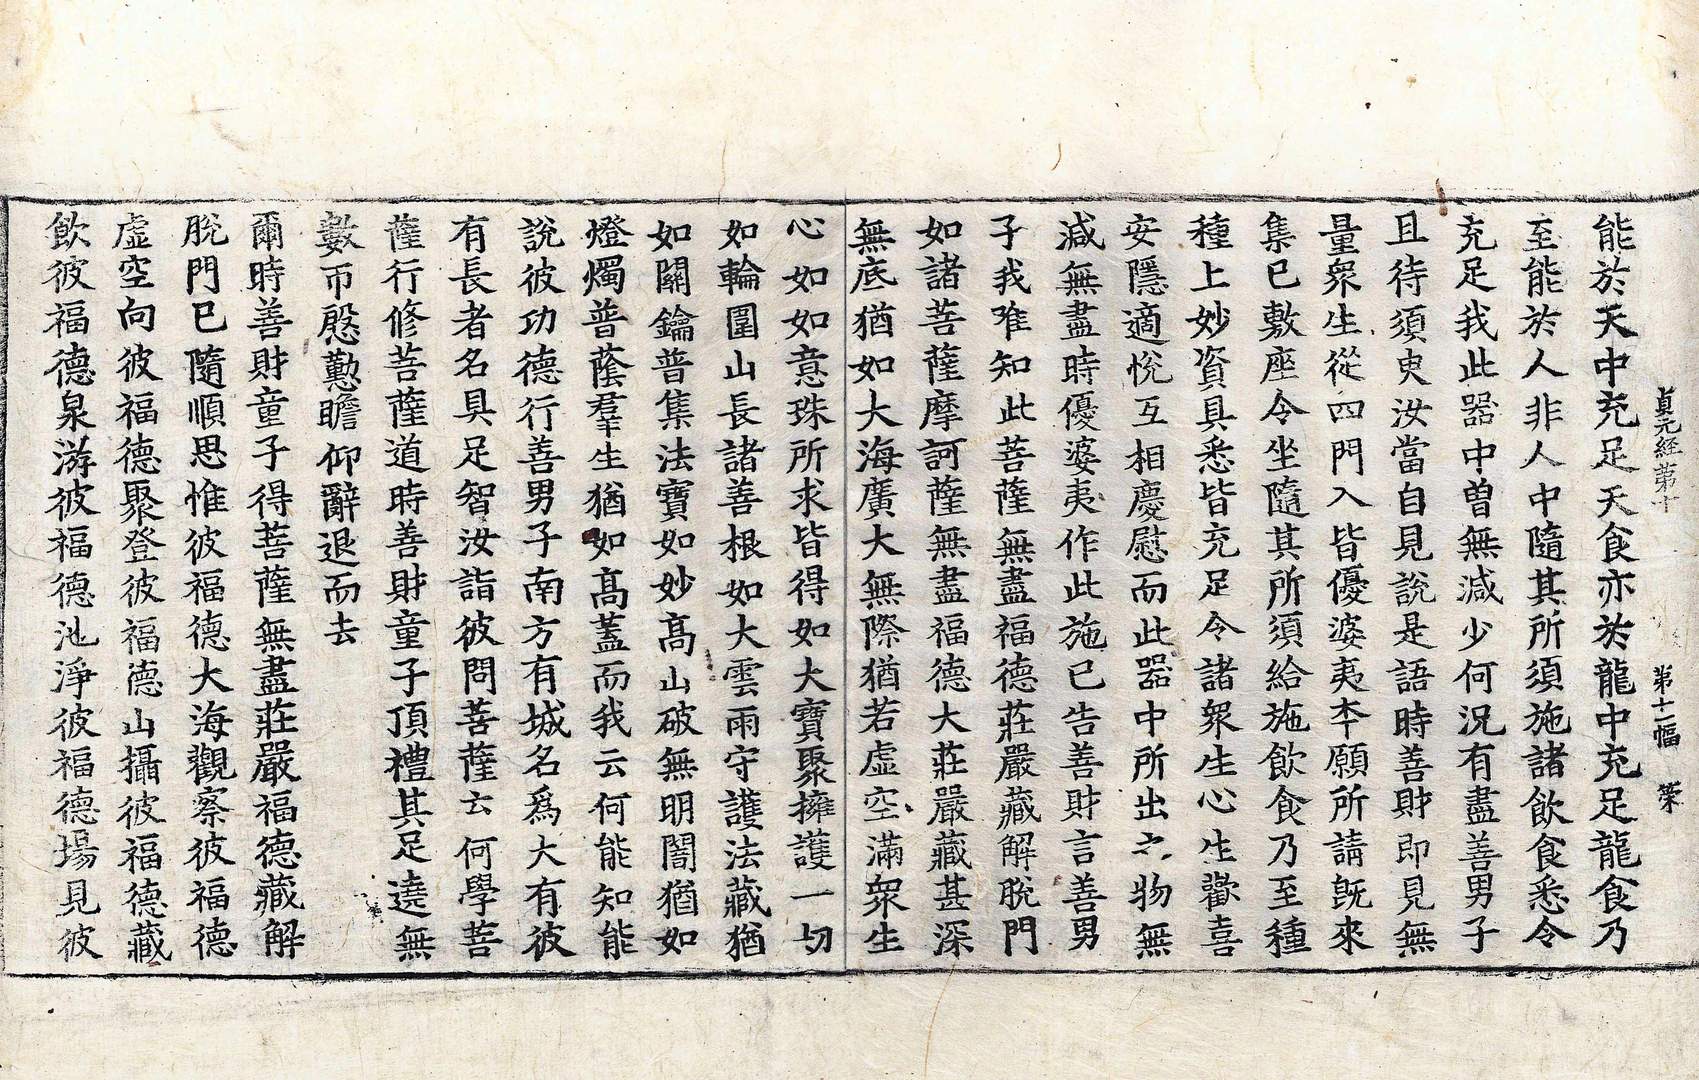 貞元經第十 第十二幅 策
能於天中充足天食亦於龍中充足龍食乃
至能於人非人中隨其所須施諸飲食悉令
充足我此器中曾無減少何況有盡善男子
且待須臾汝當自見說是語時善財即見無
量衆生從四門入皆優婆夷本願所請旣來
集已敷座令坐隨其所須給施飲食乃至種
種上妙資具悉皆充足令諸衆生心生歡喜
安隱適悅互相慶慰而此器中所出之物無
減無盡時優婆夷作此施已告善財言善男
子我唯知此菩薩無盡福德莊嚴藏解脫門
如諸菩薩摩訶薩無盡福德大莊嚴藏甚深
無底猶如大海廣大無際猶若虛空滿衆生
心如如意珠所求皆得如大寶聚擁護一切
如輪圍山長諸善根如大雲雨守護法藏猶
如關鑰普集法寶如妙高山破無明闇猶如
燈燭普蔭羣生猶如高蓋而我云何能知能
說彼功德行善男子南方有城名爲大有彼
有長者名具足智汝詣彼問菩薩云何學菩
薩行修菩薩道時善財童子頂禮其足遶無
數帀慇懃瞻仰辭退而去
爾時善財童子得菩薩無盡莊嚴福德藏解
脫門已隨順思惟彼福德大海觀察彼福德
虛空向彼福德聚登彼福德山攝彼福德藏
飲彼福德泉游彼福德池淨彼福德場見彼